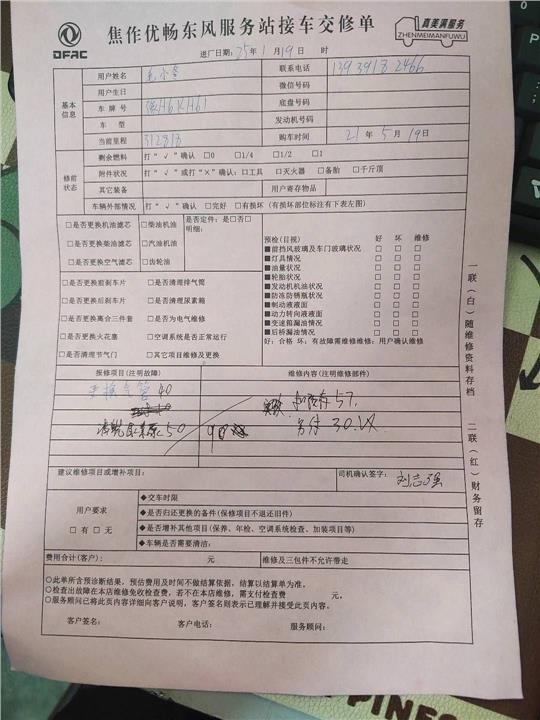 DFAC
焦作优畅东风服务站接车交修单
真美满服务
ZHENMEIMANFUWU
进厂日期：25年1月19日 时
基本信息
用户姓名 联系电话 13939182466
用户生日 微信号码
车牌号 H6KH61 底盘号码
车型 发动机号码
当前里程 312818 购车时间 21年5月19日
修前状态
剩余燃料 打"√"确认 □0 □1/4 □1/2 □1
附件状况 打"√"或打"×"确认：□工具 □灭火器 □备胎 □千斤顶
其它装备 用户寄存物品
车辆外部情况 打"√"确认 □完好 □有损坏（有损坏部位标注有下表左图）
□是否更换机油滤芯 □柴油机油 是否定件：是□否□
明细：
□是否更换柴油滤芯 □汽油机油
□是否更换空气滤芯 □齿轮油
□是否更换前刹车片 □是否清理排气筒
□是否更换后刹车片 □是否清理尿素箱
□是否更换离合三件套 □是否为电气维修
□是否更换火花塞 □空调系统是否正常运行
□是否清理节气门 □其它项目维修及更换
预检(目视) 好 坏 维修
■前挡风玻璃及车门玻璃状况 □ □ □
■灯具情况 □ □ □
■油量状况 □ □ □
■轮胎状况 □ □ □
■发动机机油状况 □ □ □
■防冻防锈瓶状况 □ □ □
■制动液液面 □ □ □
■动力转向液液面 □ □ □
■变速箱漏油情况 □ □ □
■后桥漏油情况 □ □ □
好：合格 坏：有故障需维修维修：用户确认维修
报修项目(注明故障) 维修内容(注明维修部件)
更换气管 40
50 90
57.
另付 30.
建议维修项目或增补项目： 司机确认签字： 刘志强
用户要求
□ 有 □ 无
◆交车时限
◆是否归还更换的备件(保修项目不退还旧件)
◆是否增补其他项目(保养、年检、空调系统检查、加装项目等)
◆车辆是否需要清洁：
费用合计(客户)： 元 维修及三包件不允许带走
○此单所含预诊断结果，预估费用及时间不做结算依据，结算以结算单为准。
○检查出故障在本店维修免收检查费，若不在本店维修，需支付检查费 元。
○服务顾问已将此页内容详细向客户说明，客户签名则表示已理解并接受此页内容。
客户签名： 客户电话： 服务顾问：
一联(白)随维修资料存档
二联(红)财务留存
PINEC